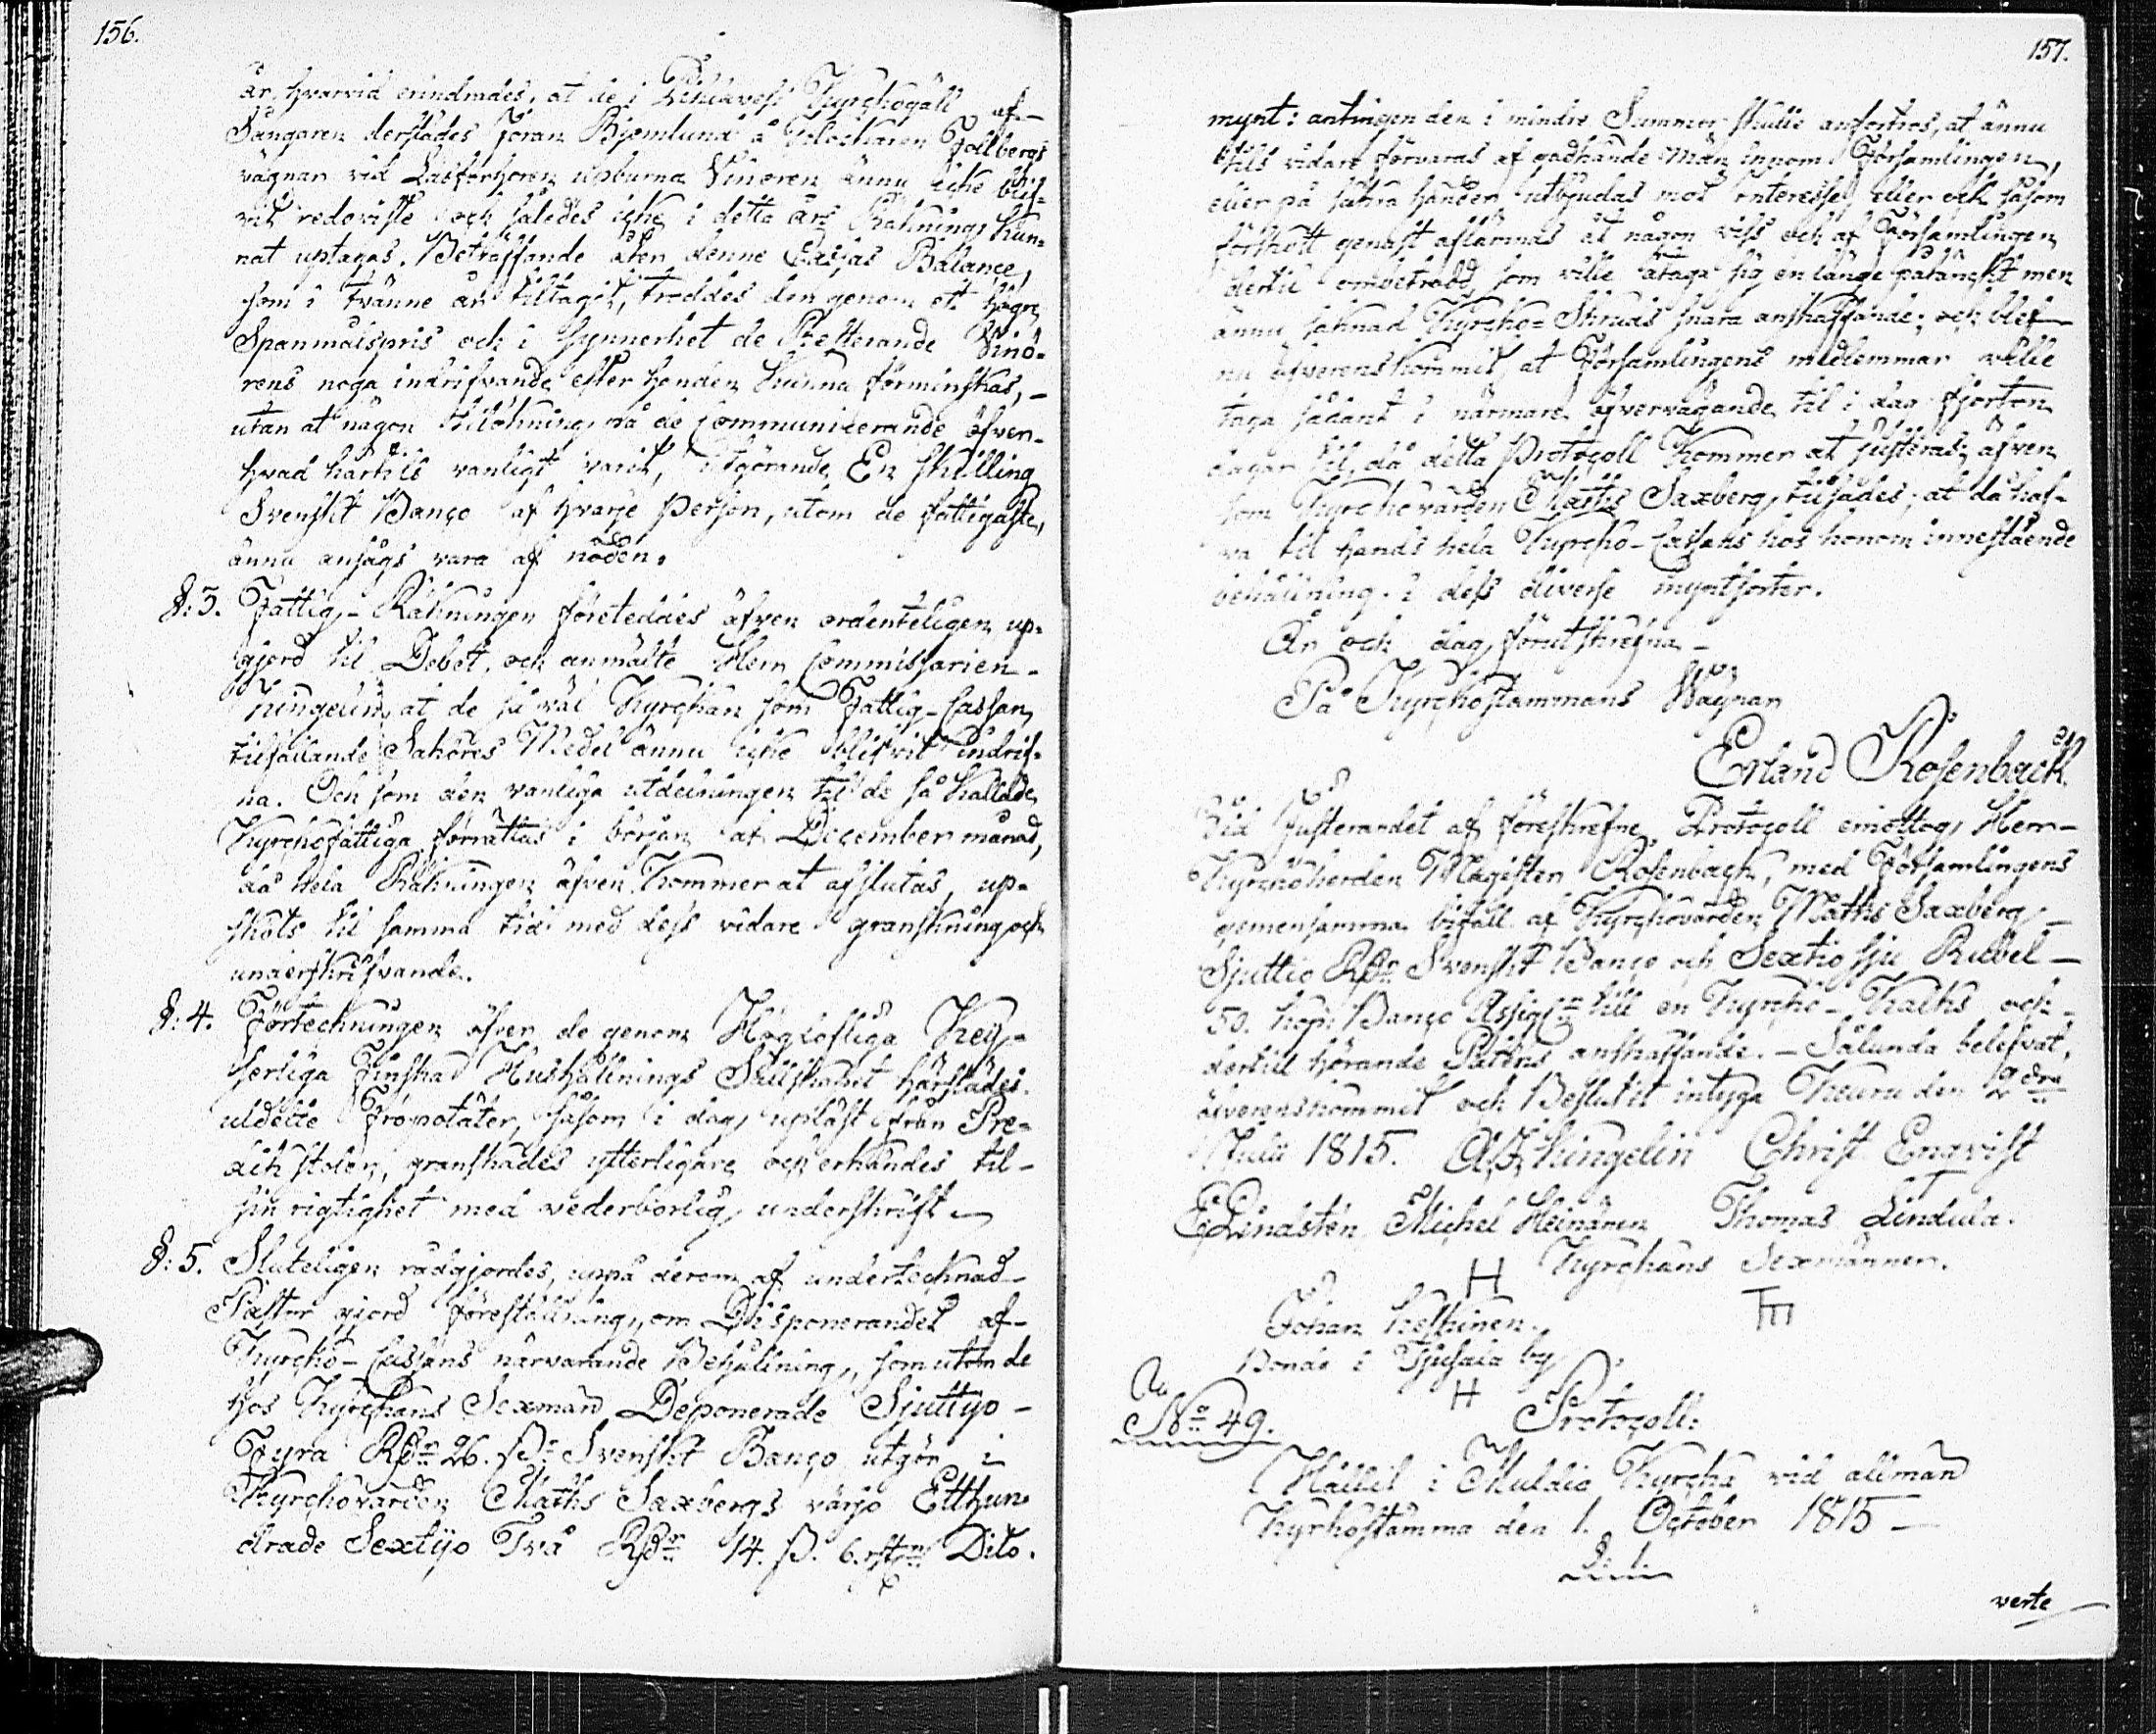 156.
år, hvarvid erindrades, at de i Pihlavesi Kyrckogäll af-
Sångaren derstädes Jöran Björnlund å Klockaren Follbergs
vägnar vid Läsförhören upburna Vinören ännu icke blif-
vit redoviste och således icke i detta års Räkning kun-
nat uptagas. Beträffande åter denne Cassas Balance,
som i tvänne år tiltagit, troddes den genom ett högre
Spanmålspris och i synnerhet de Resterande Vinö-
rens noga indrifvande efter handen kunna förminskas, -
utan at någon tilökning på de Communicerande öfver-
hvad härtils vanligt varit, utgörande En skilling
Svenskt Banco af hvarje Person, utom de fattigaste,
ännu ansågs vara af nöden.
§: 3. Fattig-Räkningen företeddes äfven ordenteligen up-
gjord til Debet, och anmälte Herr Commissarien-
Kingelin, at de så väl Kyrckan som Fattig-Cassan
tilfallande Saköres Medel ännu icke blifvit indrif-
na. Och som den vanliga utdelningen til de så kallade
Kyrckofattiga förrättas i början af December månad,
då hela Räkningen äfven kommer at afslutas, up-
sköts til samma tid med dess vidare granskning och
underskrifvande.
§: 4. Förteckningen öfver de genom Höglofliga Key-
serliga Finska Hushållnings Sällskapet härstädes
utdelte Fröpotäter, såsom i dag upläst från Pre-
dikstolen, granskades ytterligare och erkändes til-
sin rigtighet med vederbörlig underskrift.
§: 5. Sluteligen rådgjordes, uppå derom af undertecknad
Pastor gjord föreställning, om Disponerandet af-
Kyrcko-Cassans närvarande Behållning, som utom de
hos Kyrckans Sexmän Deponerade Sjuttyo-
Fyra Rdr 26. s: Svenskt Banco utgör i
Kyrckovärden Maths Saxbergs värjo Etthun-
drade Sextijo Två Rdr 14. s. 6. rst Dito.
157.
mynt: antingen den i mindre Summor skulle anförtros, at ännu
tils vidare förvaras af godkände Män innom Församlingen,
eller på säkra händer utbjudas mot interesse, eller ock såsom
förskott genast aflämnas åt någon viss och af Församlingen
dertil ombetrodd, som ville åtaga sig en länge påtänckt men
ännu saknad Kyrcko-Skruds snara anskaffande; och blef
nu öfverenskommit, at Församlingens medlemmar ville
taga sådant i närmare öfvervägande til i dag fjorton
dagar til, då detta Protocoll kommer at justeras; äfven
som Kyrckovärden Maths Saxberg tilsades, at då haf-
va til hands hela Kyrcko-Cassans hos honom innestående
behållning i dess diverse myntsorter.
År och dag förutskrefna -
På Kyrckostämmans Vägnar
Erland Rosenback.
Vid Justerandet af föreskrefne Protocoll emottog Herr-
Kyrckoherden Magister Rosenback, med Församlingens
gemensamma bifall af Kyrckovärden Maths Saxberg
Sjuttio Rdr Svenskt Banco och Sextiosju Rubel -
50. kop: Banco Assign till en Kyrcko-Kalks och
dertill hörande Patens anskaffande. - Sålunda belefvat,
öfverenskommit och Beslutit intyga Keuru den 2dra
Julii 1815. Kingelin Christ Enqvist
E Lindsten Michel Heinänen Thomas Lindula.
H Kyrckans Sexmänner.
Johan Keskinen.
Bonde i by
H
No 49. Protocoll:
Hållit i Multia Kyrcka vid allmän
Kyrkostämma den 1. October 1815 -
§: 1.
verte